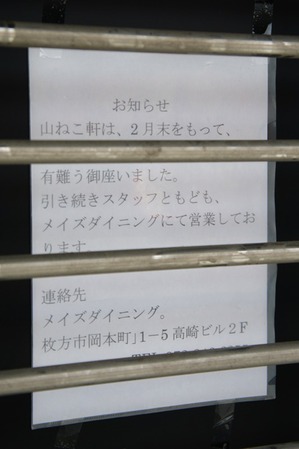 お知らせ
山ねこ軒は、2月末をもって、
有難う御座いました。
引き続きスタッフともども、
メイズダイニングにて営業してお
ります
連絡先
メイズダイニング。
枚方市岡本町」1－5高崎ビル2F